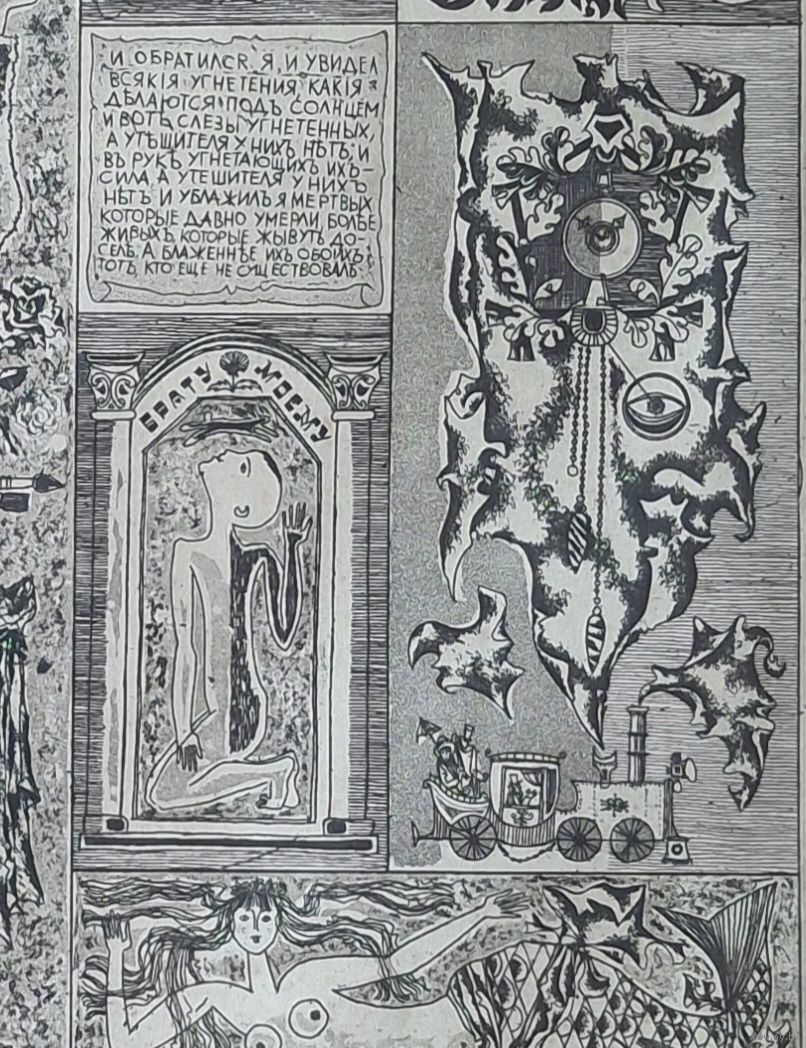 И ОБРАТИЛСЯ Я, И УВИДЕЛ
ВСЯКІЯ УГНЕТЕНИЯ, КАКІЯ
ДѢЛАЮТСЯ ПОДЪ СОЛНЦЕМ
И ВОТЪ СЛЕЗЫ УГНЕТЕННЫХ,
А УТѢШИТЕЛЯ У НИХЪ НѢТЪ; И
ВЪ РУКѢ УГНЕТАЮЩИХЪ ИХЪ –
СИЛА, А УТЕШИТЕЛЯ У НИХЪ
НѢТЪ И УБЛАЖИЛЪ Я МЕРТВЫХ
КОТОРЫЕ ДАВНО УМЕРЛИ, БОЛѢЕ
ЖИВЫХЪ, КОТОРЫЕ ЖЫВУТЪ ДО-
СЕЛѢ, А БЛАЖЕННѢЕ ИХЪ ОБОИХЪ
ТОТЪ, КТО ЕЩЕ НЕ СУЩЕСТВОВАЛЪ
БРАТУ МОЕМУ